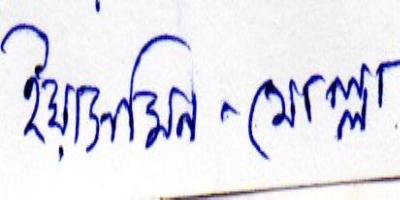 ইয়াসমিন মোল্লা